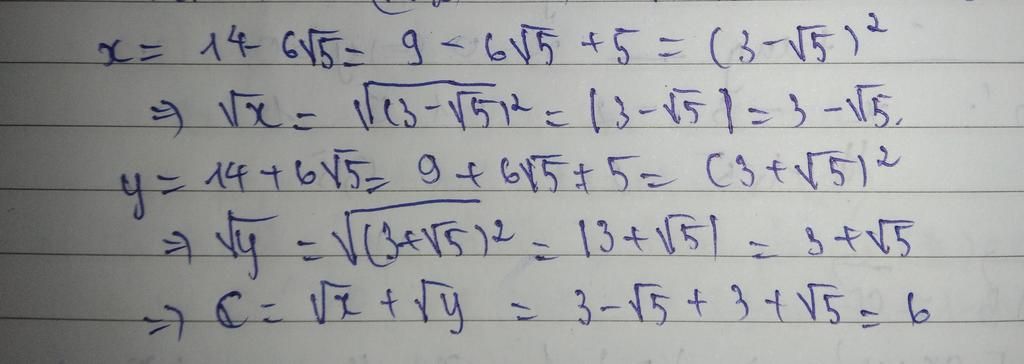 x = 14 - 6√5 = 9 - 6√5 + 5 = (3 - √5)²
⇒ √x = √(3 - √5)² = |3 - √5| = 3 - √5.
y = 14 + 6√5 = 9 + 6√5 + 5 = (3 + √5)²
⇒ √y = √(3 + √5)² = |3 + √5| = 3 + √5
⇒ C = √x + √y = 3 - √5 + 3 + √5 = 6